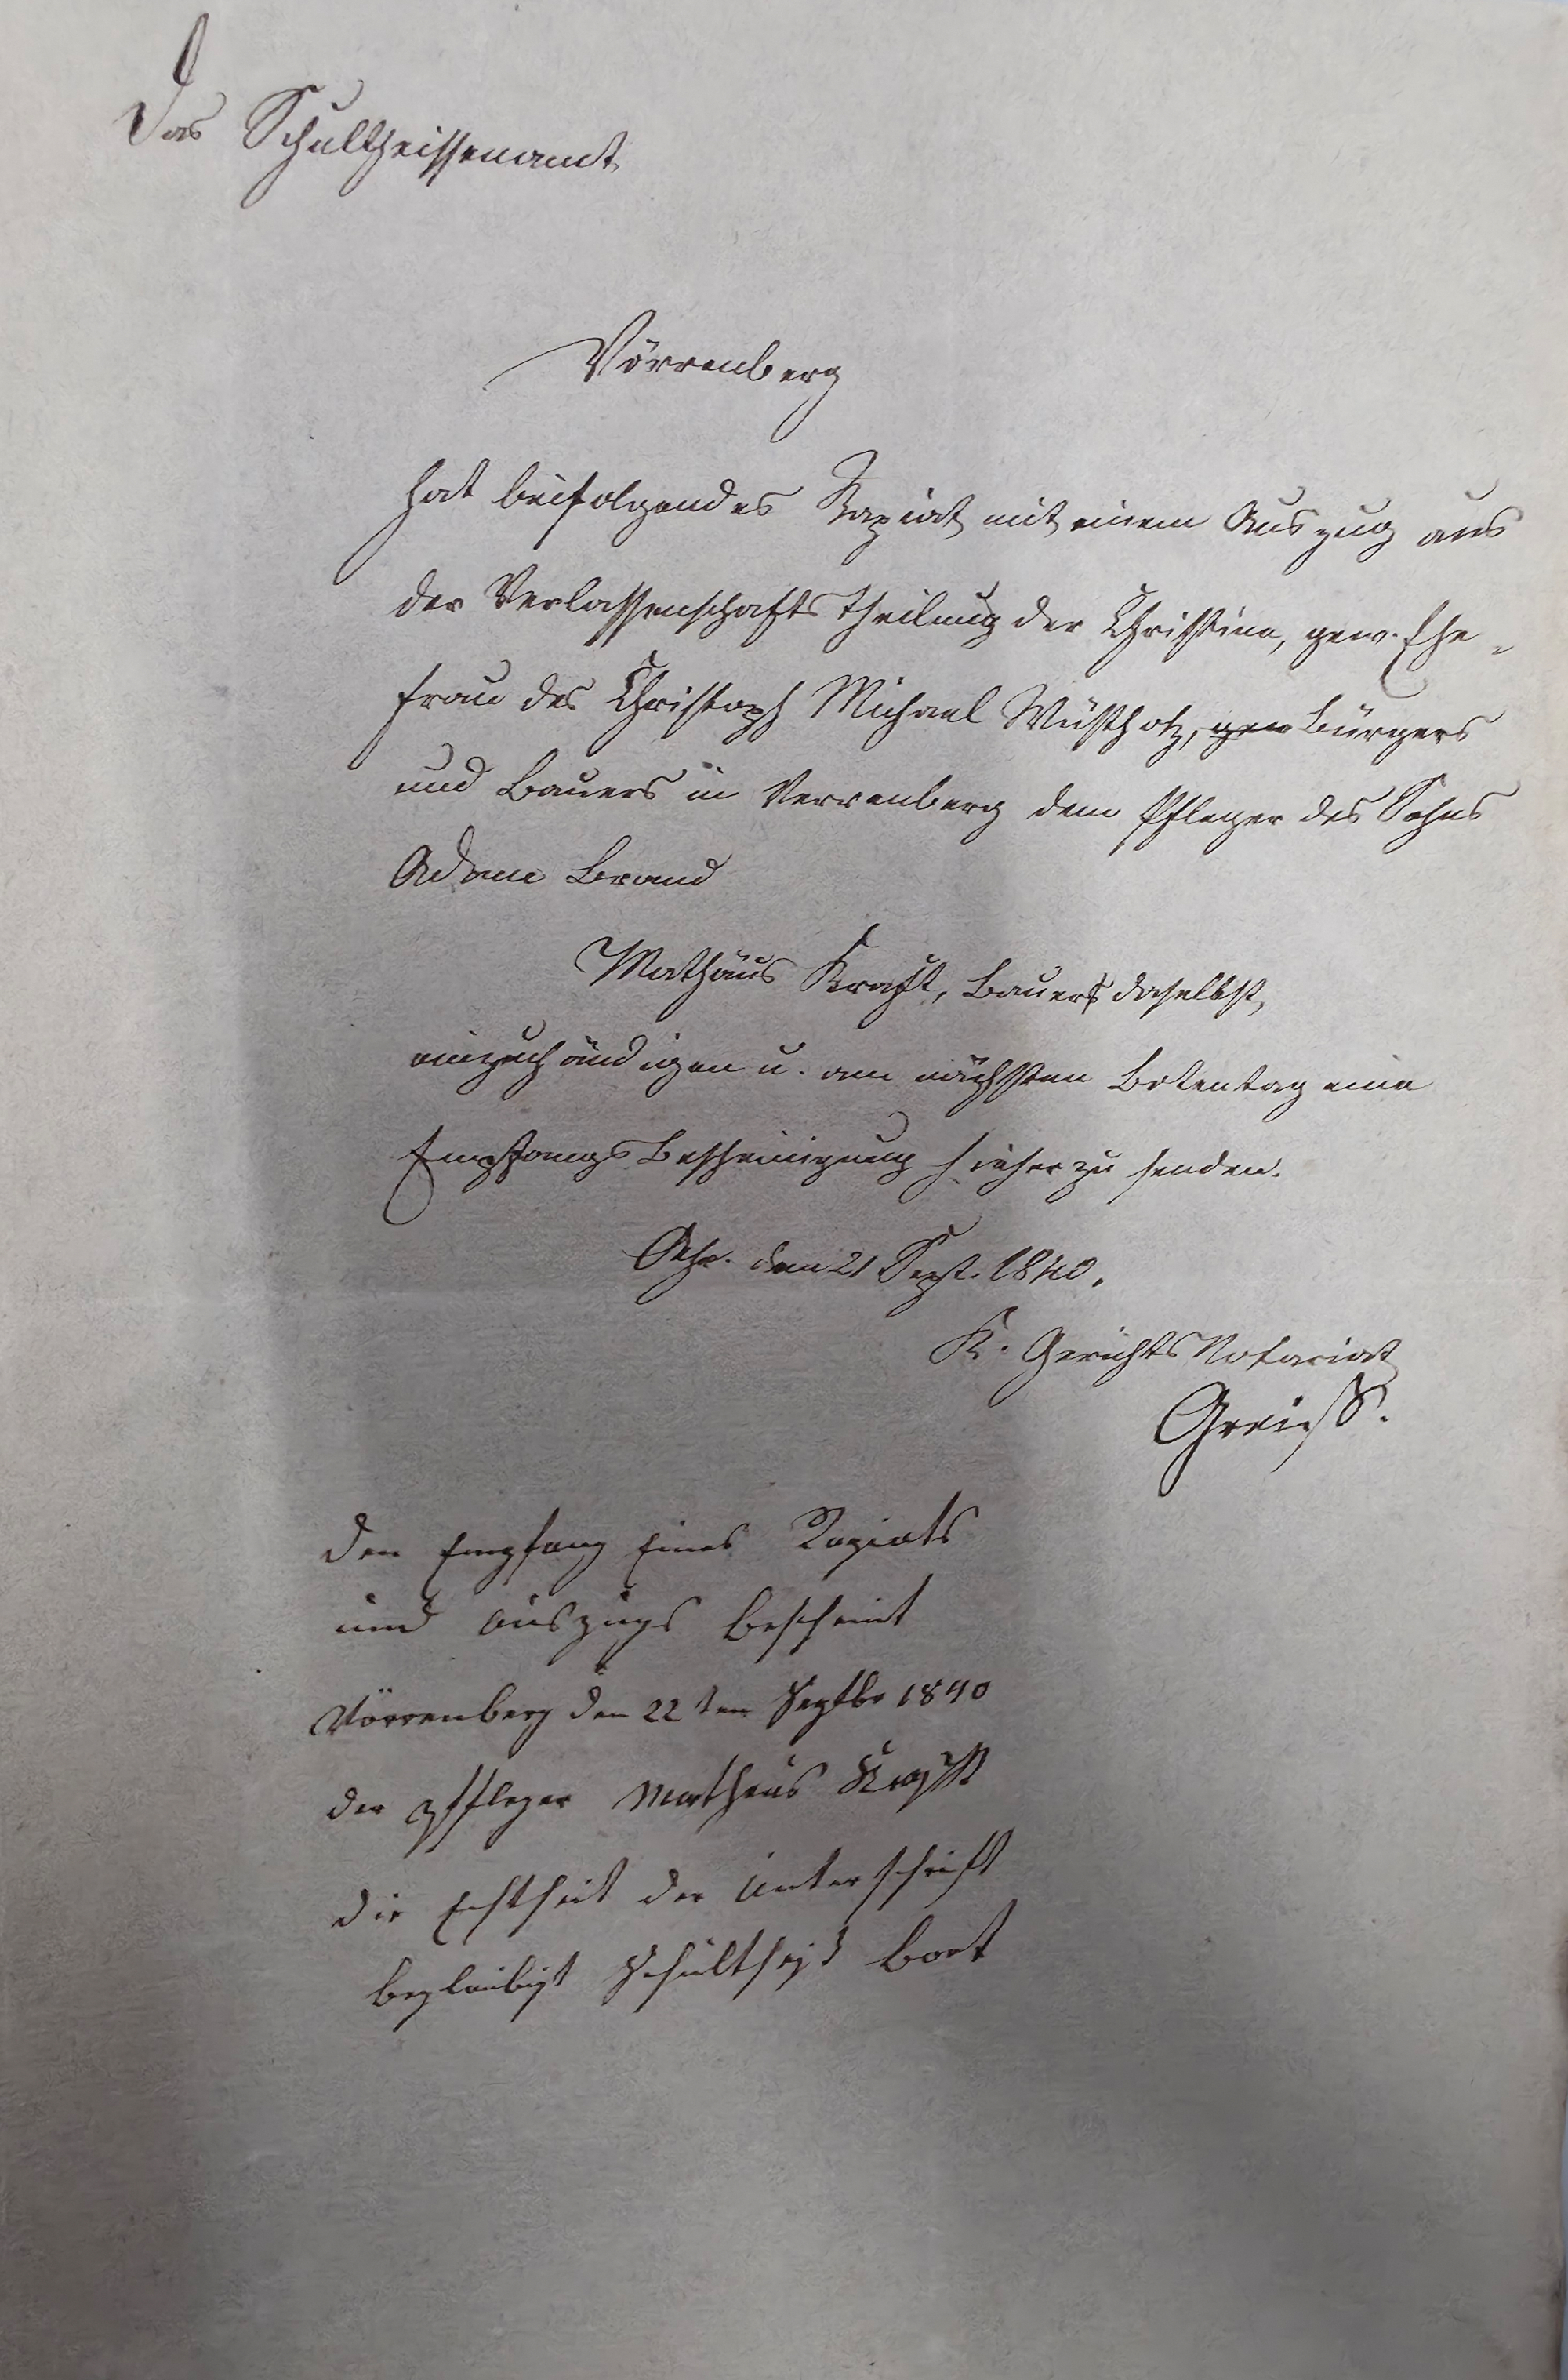 Das Schultheissenamt
Vörrenberg
hat beifolgendes Rapiat mit einem Auszug aus
der Verlassenschafts Theilung der Christine, gew. Ehe-
frau des Christoph Michael Wüstholz, gew Bürgers
und Bauers in Verrenberg dem Pfleger des Sohns
Adam Brand
Mathäus Kraft, Bauers daselbst,
einzuhändigen u. am nächsten Botentag eine
Empfangs Bescheinigung hieher zu senden.
Oehr. den 21 Sept. 1840.
K. Gerichts Notariat
Greiß.
den Empfang Eines Rapiats
und auszugs bescheint
Vörrenberg den 22 ten Septbr 1840
der pfleger Matheus Krafft
die Echtheit der unterschrift
beglaubigt Schultheiß Bort